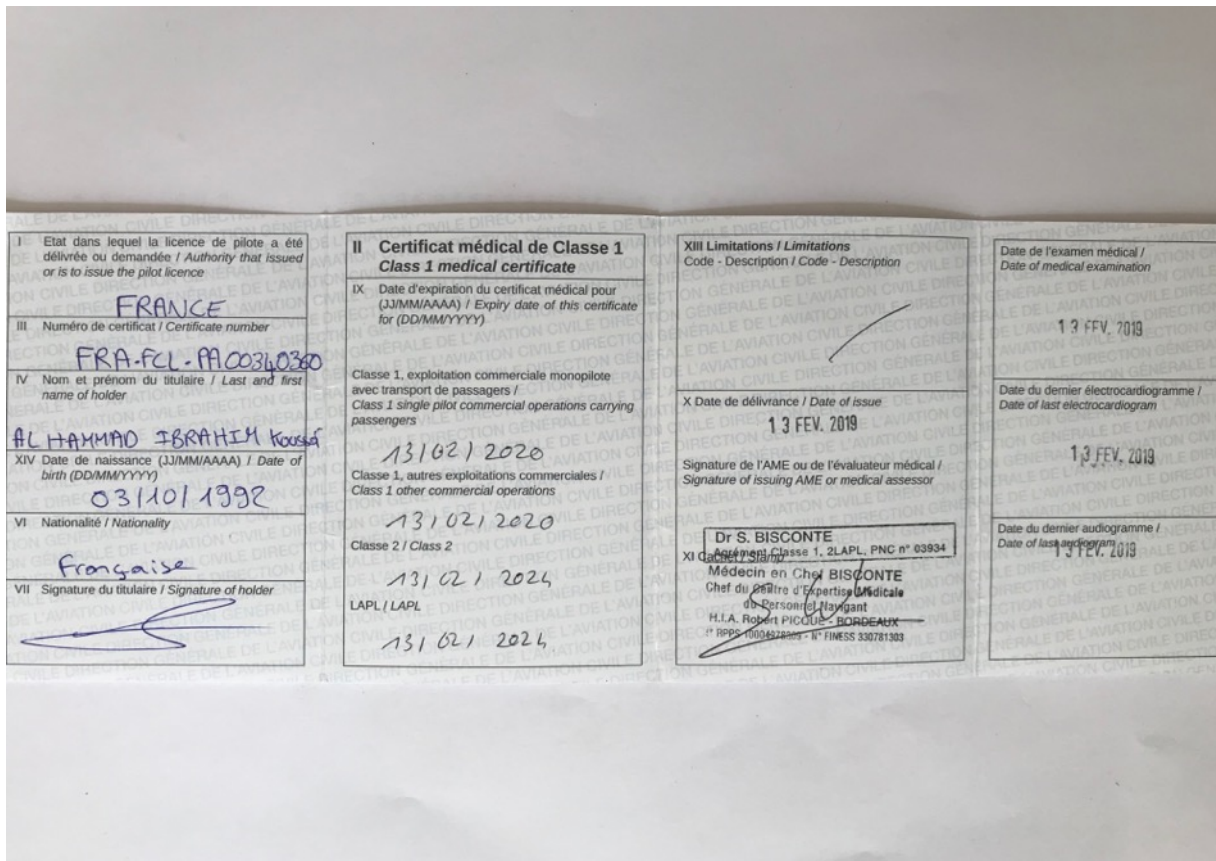 I Etat dans lequel la licence de pilote a été
délivrée ou demandée / Authority that issued
or is to issue the pilot licence
FRANCE
III Numéro de certificat / Certificate number
FRA-FCL-PA00340360
IV Nom et prénom du titulaire / Last and first
name of holder
AL HAMMAD IBRAHIM
XIV Date de naissance (JJ/MM/AAAA) / Date of
birth (DD/MM/YYYY)
03/10/1992
VI Nationalité / Nationality
Française
VII Signature du titulaire / Signature of holder
II Certificat médical de Classe 1
Class 1 medical certificate
IX Date d'expiration du certificat médical pour
(JJ/MM/AAAA) / Expiry date of this certificate
for (DD/MM/YYYY)
Classe 1, exploitation commerciale monopilote
avec transport de passagers /
Class 1 single pilot commercial operations carrying
passengers
13/02/2020
Classe 1, autres exploitations commerciales /
Class 1 other commercial operations
13/02/2020
Classe 2 / Class 2
13/02/2024
LAPL / LAPL
13/02/2024
XIII Limitations / Limitations
Code - Description / Code - Description
X Date de délivrance / Date of issue
13 FEV. 2019
Signature de l'AME ou de l'évaluateur médical /
Signature of issuing AME or medical assessor
Dr S. BISCONTE
Agrément Classe 1, 2LAPL, PNC n° 03934
XI Cachet / Stamp
Médecin en Chef BISCONTE
Chef du Centre d'Expertise Médicale
du Personnel Navigant
H.I.A. Robert PICQUE - BORDEAUX
N° FINESS 330781303
Date de l'examen médical /
Date of medical examination
13 FEV. 2019
Date du dernier électrocardiogramme /
Date of last electrocardiogram
13 FEV. 2019
Date du dernier audiogramme /
Date of last audiogram
13 FEV. 2019